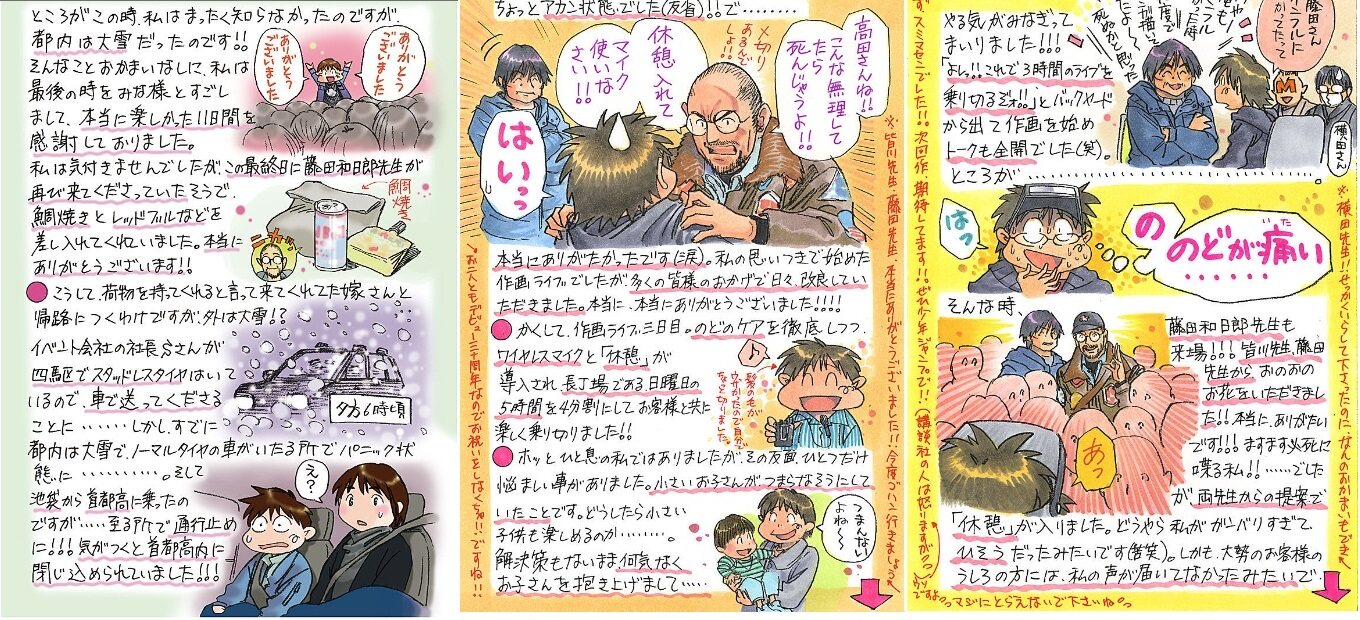 やる気がみなぎって
まいりました!!!
「よし!!これで3時間のライブを
乗り切るぞ!!」とバックヤード
から出て作画を始め
トークも全開でした(笑)。
ところが
藤田さん
横田さん
はっ
の
のどが痛い
いた
そんな時、
藤田和日郎先生も
来場!!!皆川先生、藤田
先生から、おのおの
お花をいただきまし
た!!本当に、ありがたい
です!!!ますます必死に
喋る私!!……でした
が、両先生からの提案で
あっ
「休憩」が入りました。どうやら私がガンバリすぎて
ひそうだったみたいです(苦笑)。しかも、大勢のお客様の
うしろの方には、私の声が届いてなかったみたいで
※横田先生!!せっかくいらして下さったのになんのおかまいもできず
スミマセンでした!!!次回作、期待してます!!ぜひ少年ジャンプで!!(講談社の人は怒りますが?っ
マジにとらえないで下さいねっ
ちょっとアカン状態でした(反省)!!で
高田さんね!!
こんな無理して
たら
死んじゃうよ!!
〆切り
あるんで
しょ!!
休憩入れて
マイク
使いな
さい!!
はいっっ
本当にありがたかったです(涙)。私の思いつきで始めた
作画ライブでしたが、多くの皆様のおかげで日々、改良してい
ただきました。本当に、本当にありがとうございました!!!!
●かくして、作画ライブ三日目。のどのケアを徹底しつつ、
ワイヤレスマイクと「休憩」が
導入され、長丁場である日曜日の
5時間を4分割にしてお客様と共に
楽しく乗り切りました!!
♪
●ホッとひと息の私ではありましたが、その反面、ひとつだけ
悩ましい事がありました。小さいお子さんがつまらなそうにして
いたことです。どうしたら小さい
子供も楽しめるのか………。
解決策もないまま何気なく
お子さんを抱き上げまして……
つまんない
よね〜〜
※皆川先生、藤田先生、本当にありがとうございました!!今度ゴハン行きましょう
お二人ともデビュー三十周年なのでお祝いをしなくちゃ!!ですね!!
ところがこの時、私はまったく知らなかったのですが、
都内は大雪だったのです!!
そんなことおかまいなしに、私は
最後の時をみな様とすごし
まして、本当に楽しかった11日間を
感謝しておりました。
ありがとう
ございました
ありがとう
ございました
私は気付きませんでしたが、この最終日に藤田和日郎先生が
再び来てくださっていたそうで、
鯛焼きとレッドブルなどを
差し入れてくれていました。本当に
ありがとうございます!!
鯛焼き
ニカッ
●こうして、荷物を持ってくれると言って来てくれてた嫁さんと
帰路につくわけですが、外は大雪!?
イベント会社の社長Sさんが
四駆でスタッドレスタイヤはいて
いるので、車で送ってくださる
ことに………しかし、すでに
夕方6時頃
都内は大雪で、ノーマルタイヤの車がいたる所でパニック状
態に…………。そして
池袋から首都高に乗ったの
ですが……至る所で通行止め
に!!!気がつくと首都高内に
閉じ込められていました!!!
え?